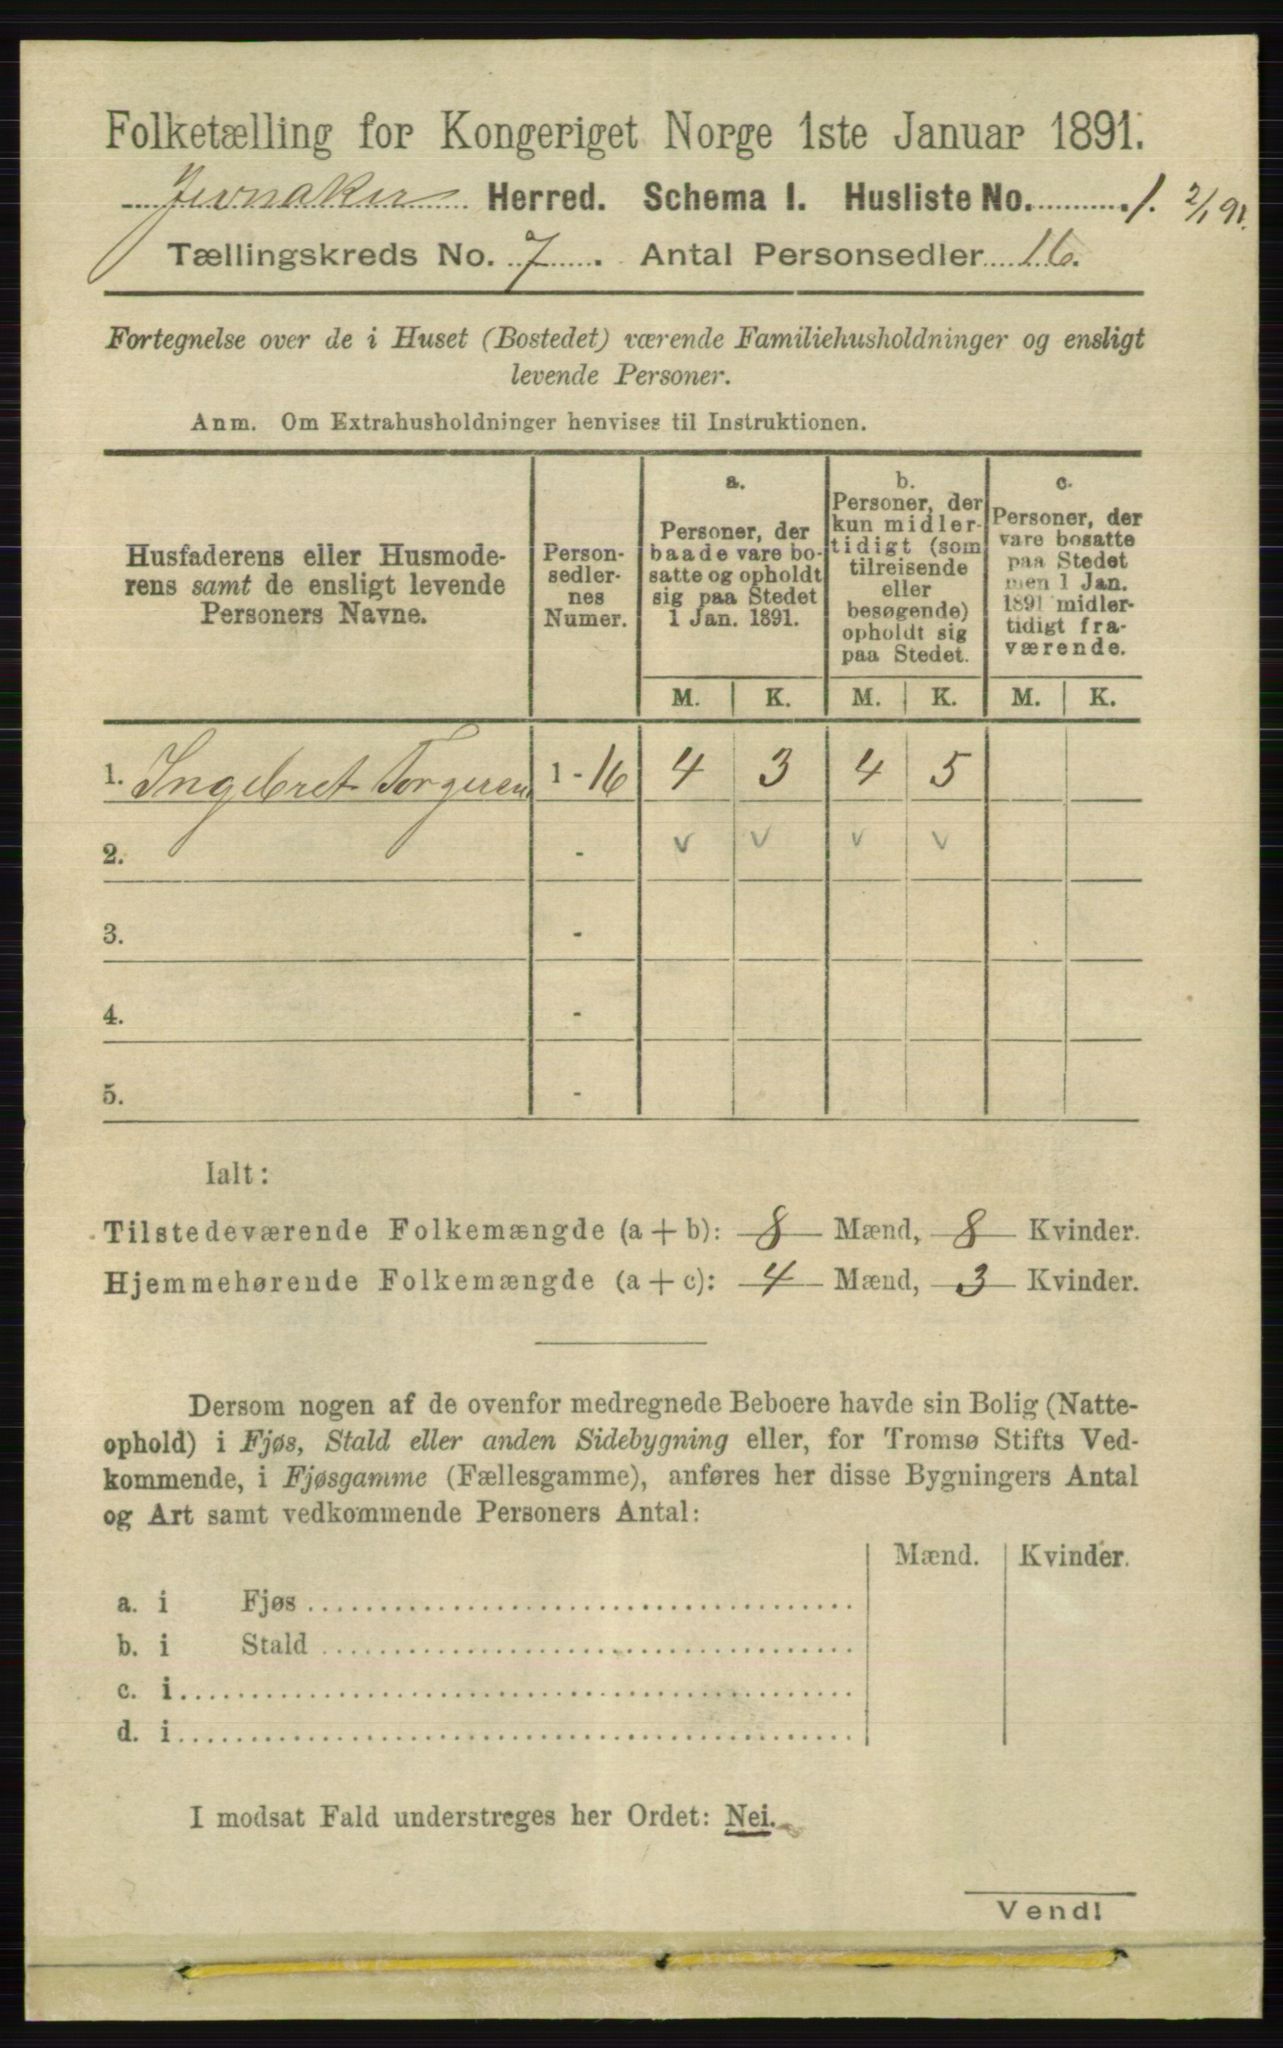 Folketælling for Kongeriget Norge 1ste Januar 1891.
Jevnaker Herred. Schema I. Husliste No. 1. 2/1 91.
Tællingskreds No. 7. Antal Personsedler 16.
Fortegnelse over de i Huset (Bostedet) værende Familiehusholdninger og ensligt
levende Personer.
Anm. Om Extrahusholdninger henvises til Instruktionen.
Husfaderens eller Husmode-
rens samt de ensligt levende
Personers Navne.
Person-
sedler-
nes
Numer.
a.
Personer, der
baade vare bo-
satte og opholdt
sig paa Stedet
1 Jan. 1891.
b.
Personer, der
kun midler-
tidigt (som
tilreisende
eller
besøgende)
opholdt sig
paa Stedet.
c.
Personer, der
vare bosatte
paa Stedet
men 1 Jan.
1891 midler-
tidigt fra-
værende.
M. K. M. K. M. K.
1. Ingebret Torgersen 1 - 16 4 3 4 5
2. - v v v v
3. -
4. -
5. -
Ialt:
Tilstedeværende Folkemængde (a + b): 8 Mænd, 8 Kvinder.
Hjemmehørende Folkemængde (a + c): 4 Mænd, 3 Kvinder.
Dersom nogen af de ovenfor medregnede Beboere havde sin Bolig (Natte-
ophold) i Fjøs, Stald eller anden Sidebygning eller, for Tromsø Stifts Ved-
kommende, i Fjøsgamme (Fællesgamme), anføres her disse Bygningers Antal
og Art samt vedkommende Personers Antal:
Mænd. Kvinder.
a. i Fjøs
b. i Stald
c. i
d. i
I modsat Fald understreges her Ordet: Nei.
Vend!